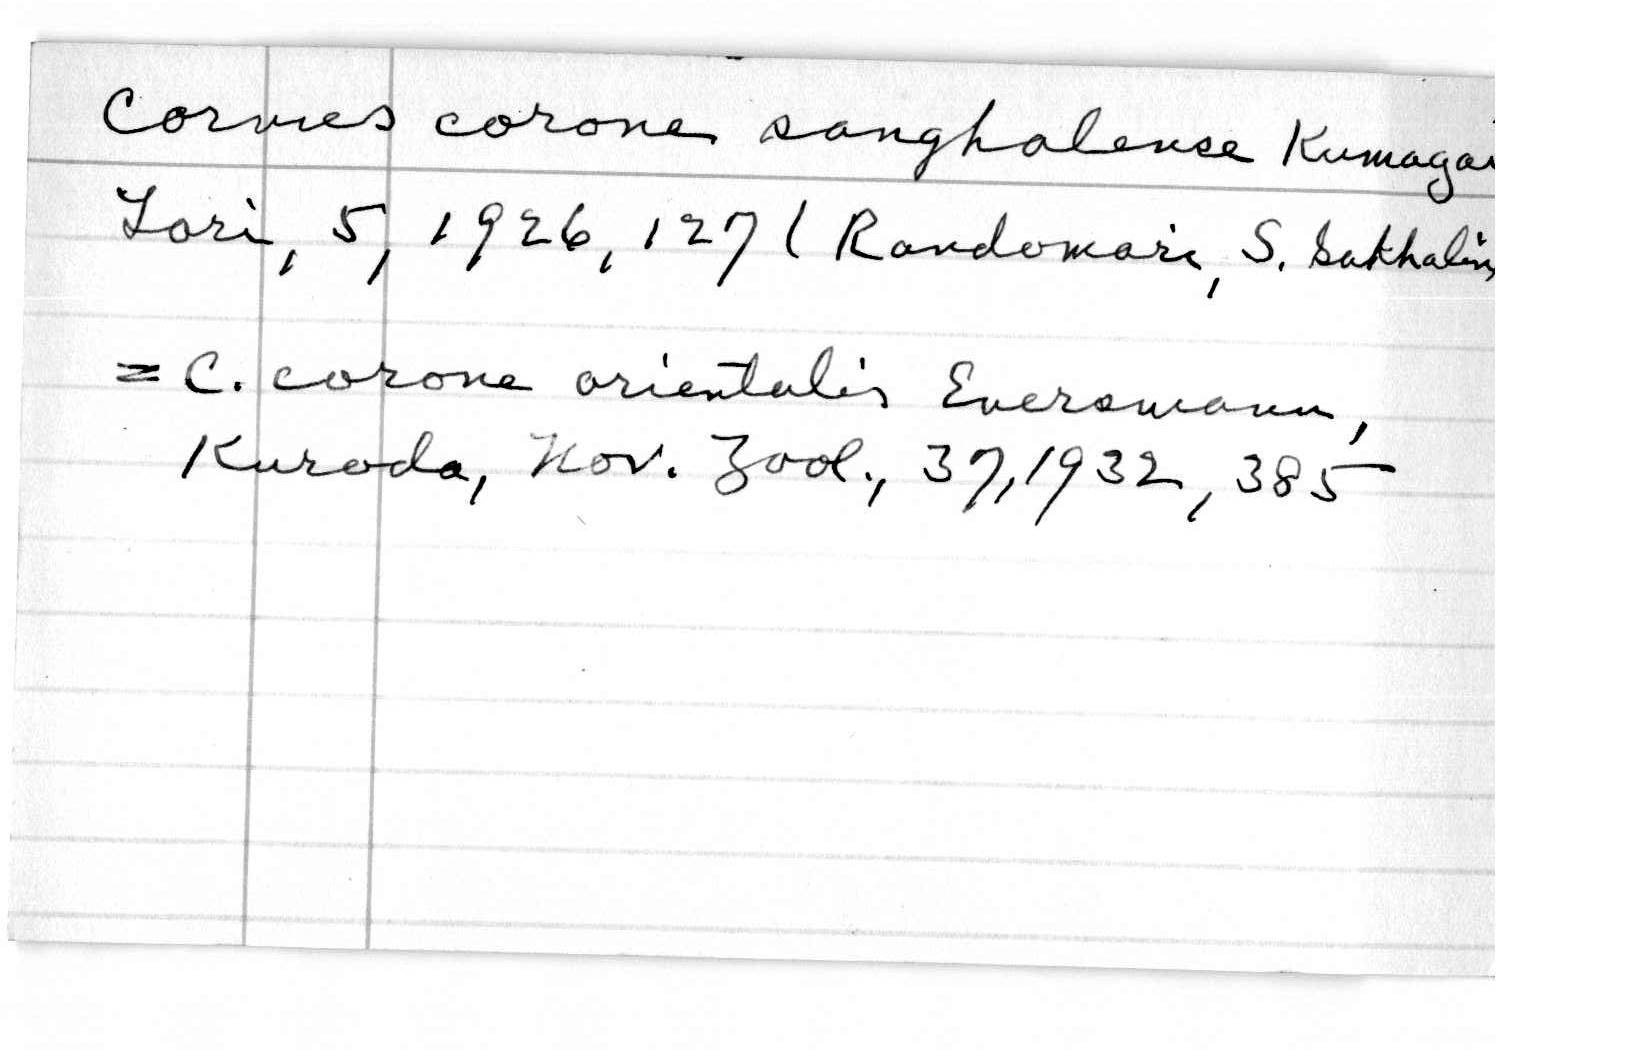 Corvus corone sanghalense Kumagai
Tori, 5, 1926, 127 ( Randomari, S. Sakhalin,
= C. corone orientalis Eversmann,
Kuroda, Nov. Zool., 37, 1932, 385